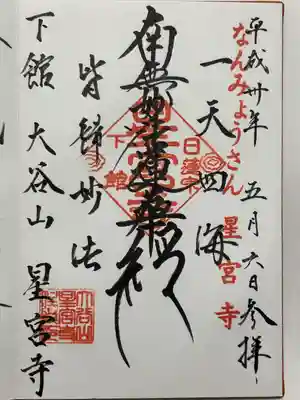 平成卅年 五月六日参拝
なんみようさん 星宮寺
一天四海
南無妙法蓮華経
皆歸妙法
下館 大谷山 星宮寺
日蓮宗
下館
大谷山
星宮寺